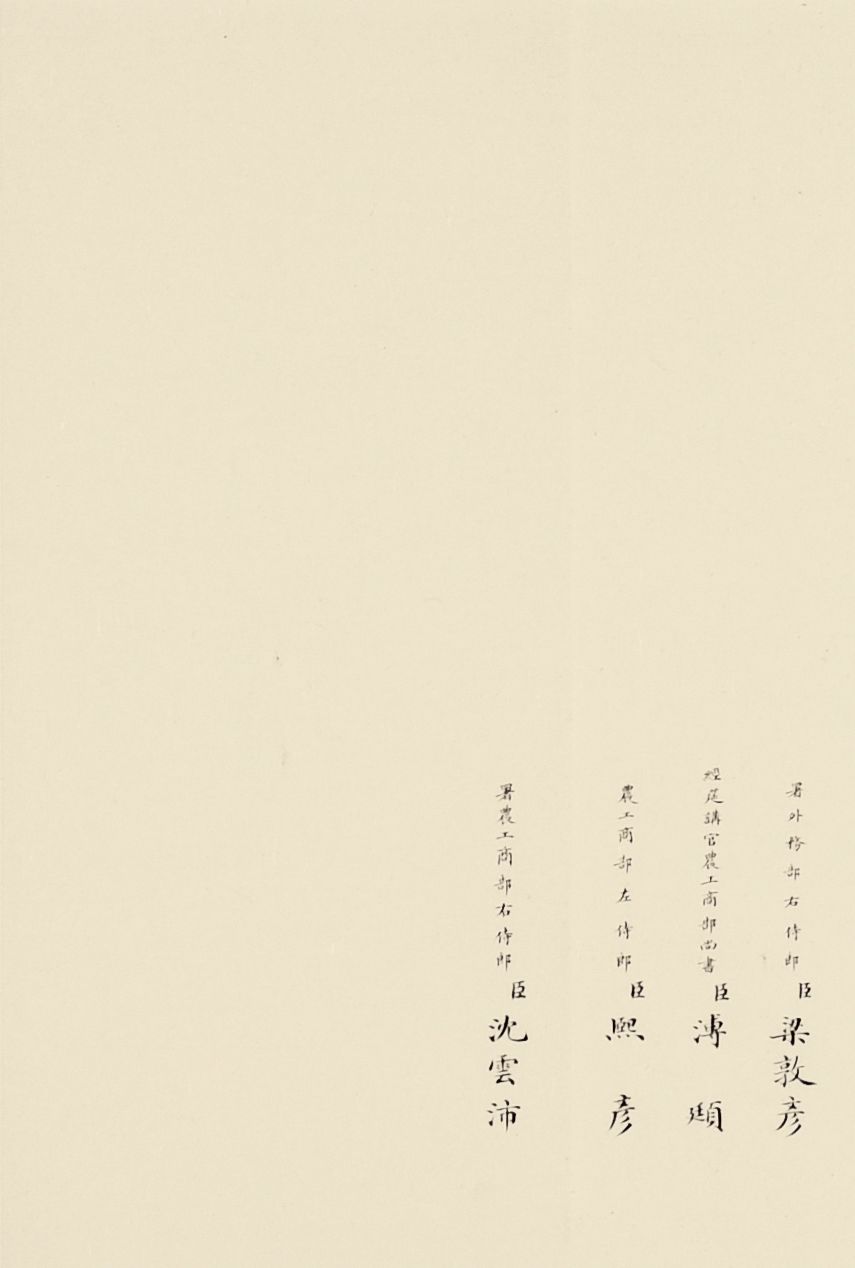 署外務部右侍郎臣梁敦彥
經筵講官農工商部尚書臣溥頲
農工商部左侍郎臣熙彥
署農工商部右侍郎臣沈雲沛